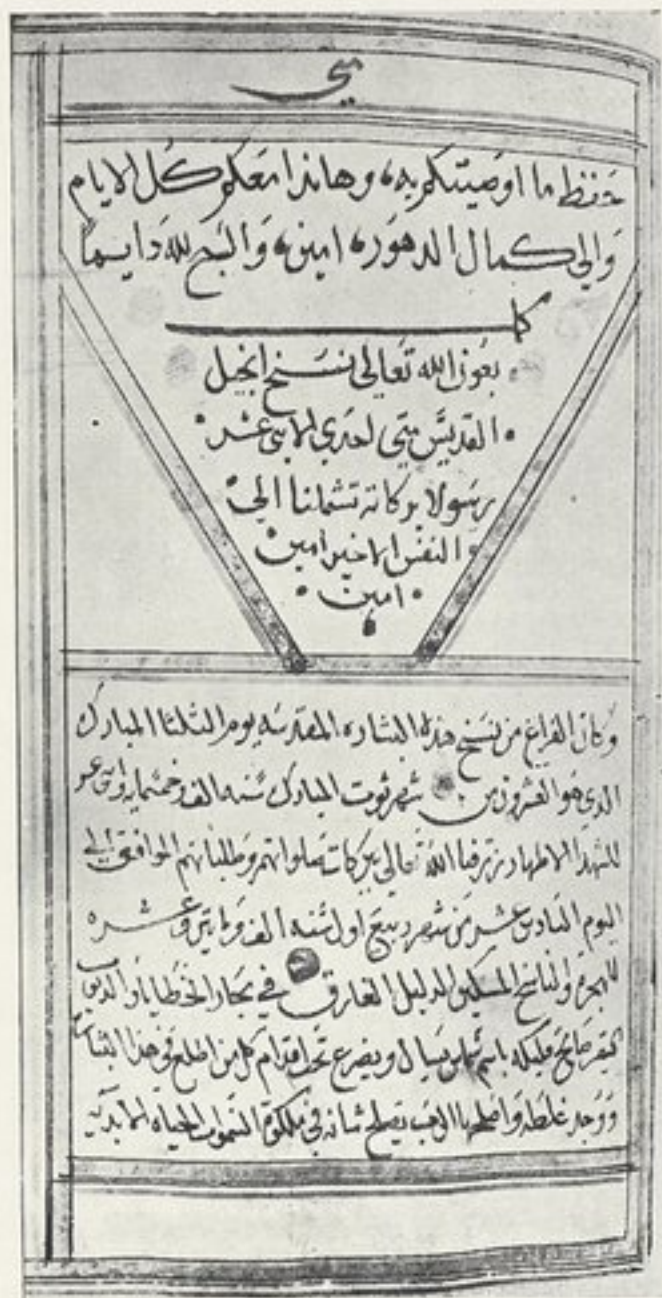 متي
حفظ ما اوصيتكم به، وهاندا معكم كل الايام
والي كمال الدهور، امين، والسبح لله دايما
كمل
بعون الله تعالي نسخ انجيل
القديس متي احدي الاتني عشر
رسولا بركاته تشملنا الي
النفس الاخير امين
امين
وكان الفراغ من نسخ هذه البشاره المقدسه يوم التلتا المبارك
الدي هو العشرون من شهر توت المبارك سنه الف وخمسمايه واتني عشر
للشهدا الاطهار نرزقنا الله تعالي بركات صلواتهم وطلباتهم الموافق الي
اليوم السادس عشر من شهر ربيع اول سنه الف ومايتين وعشره
للهجرة والناسخ المسكين الدليل الغارق في بحار الخطايا والدي
باسم شماس يسال ويضرع تحت اقدام كل من اطلع في هذا
ووجد غلطه واصلحها الرب يصلح شانه في ملكوة السموات الحياه الابديه